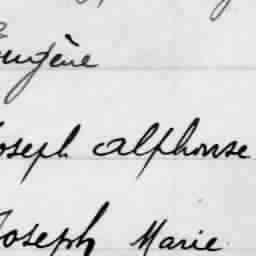 Eugène
Joseph Alphonse
Joseph Marie